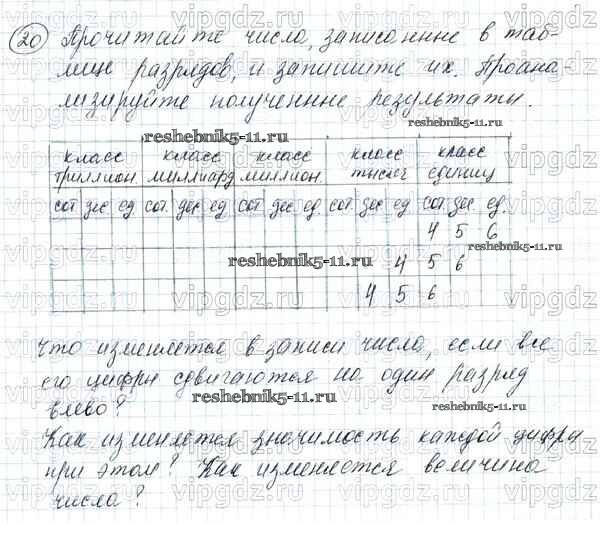 20 Прочитайте числа, записанные в таб-
лице разрядов, и запишите их. Проана-
лизируйте полученные результаты.
reshebnik5-11.ru
класс класс класс класс класс
триллион. миллиард миллион. тысяч единиц
сот дес ед сот. дес ед сот дес ед. сот. дес ед сот. дес ед.
4 5 6
reshebnik5-11.ru
4 5 6
reshebnik5-11.ru
4 5 6
Что изменяется в записи числа, если все
его цифры сдвигаются на один разряд
влево?
reshebnik5-11.ru
reshebnik5-11.ru
Как изменяется значимость каждой цифры
при этом? Как изменяется величина
числа?
vipgdz.ru